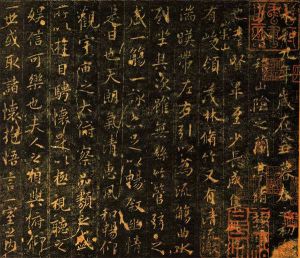 永和九年歲在癸丑暮春之初會
于會稽山陰之蘭亭脩禊事
也群賢畢至少長咸集此地
有崇山峻領茂林脩竹又有清流激
湍暎帶左右引以為流觴曲水
列坐其次雖無絲竹管弦之
盛一觴一詠亦足以暢敘幽情
是日也天朗氣清惠風和暢仰
觀宇宙之大俯察品類之盛
所以遊目騁懷足以極視聽之
娛信可樂也夫人之相與俯仰
一世或取諸懷抱悟言一室之內